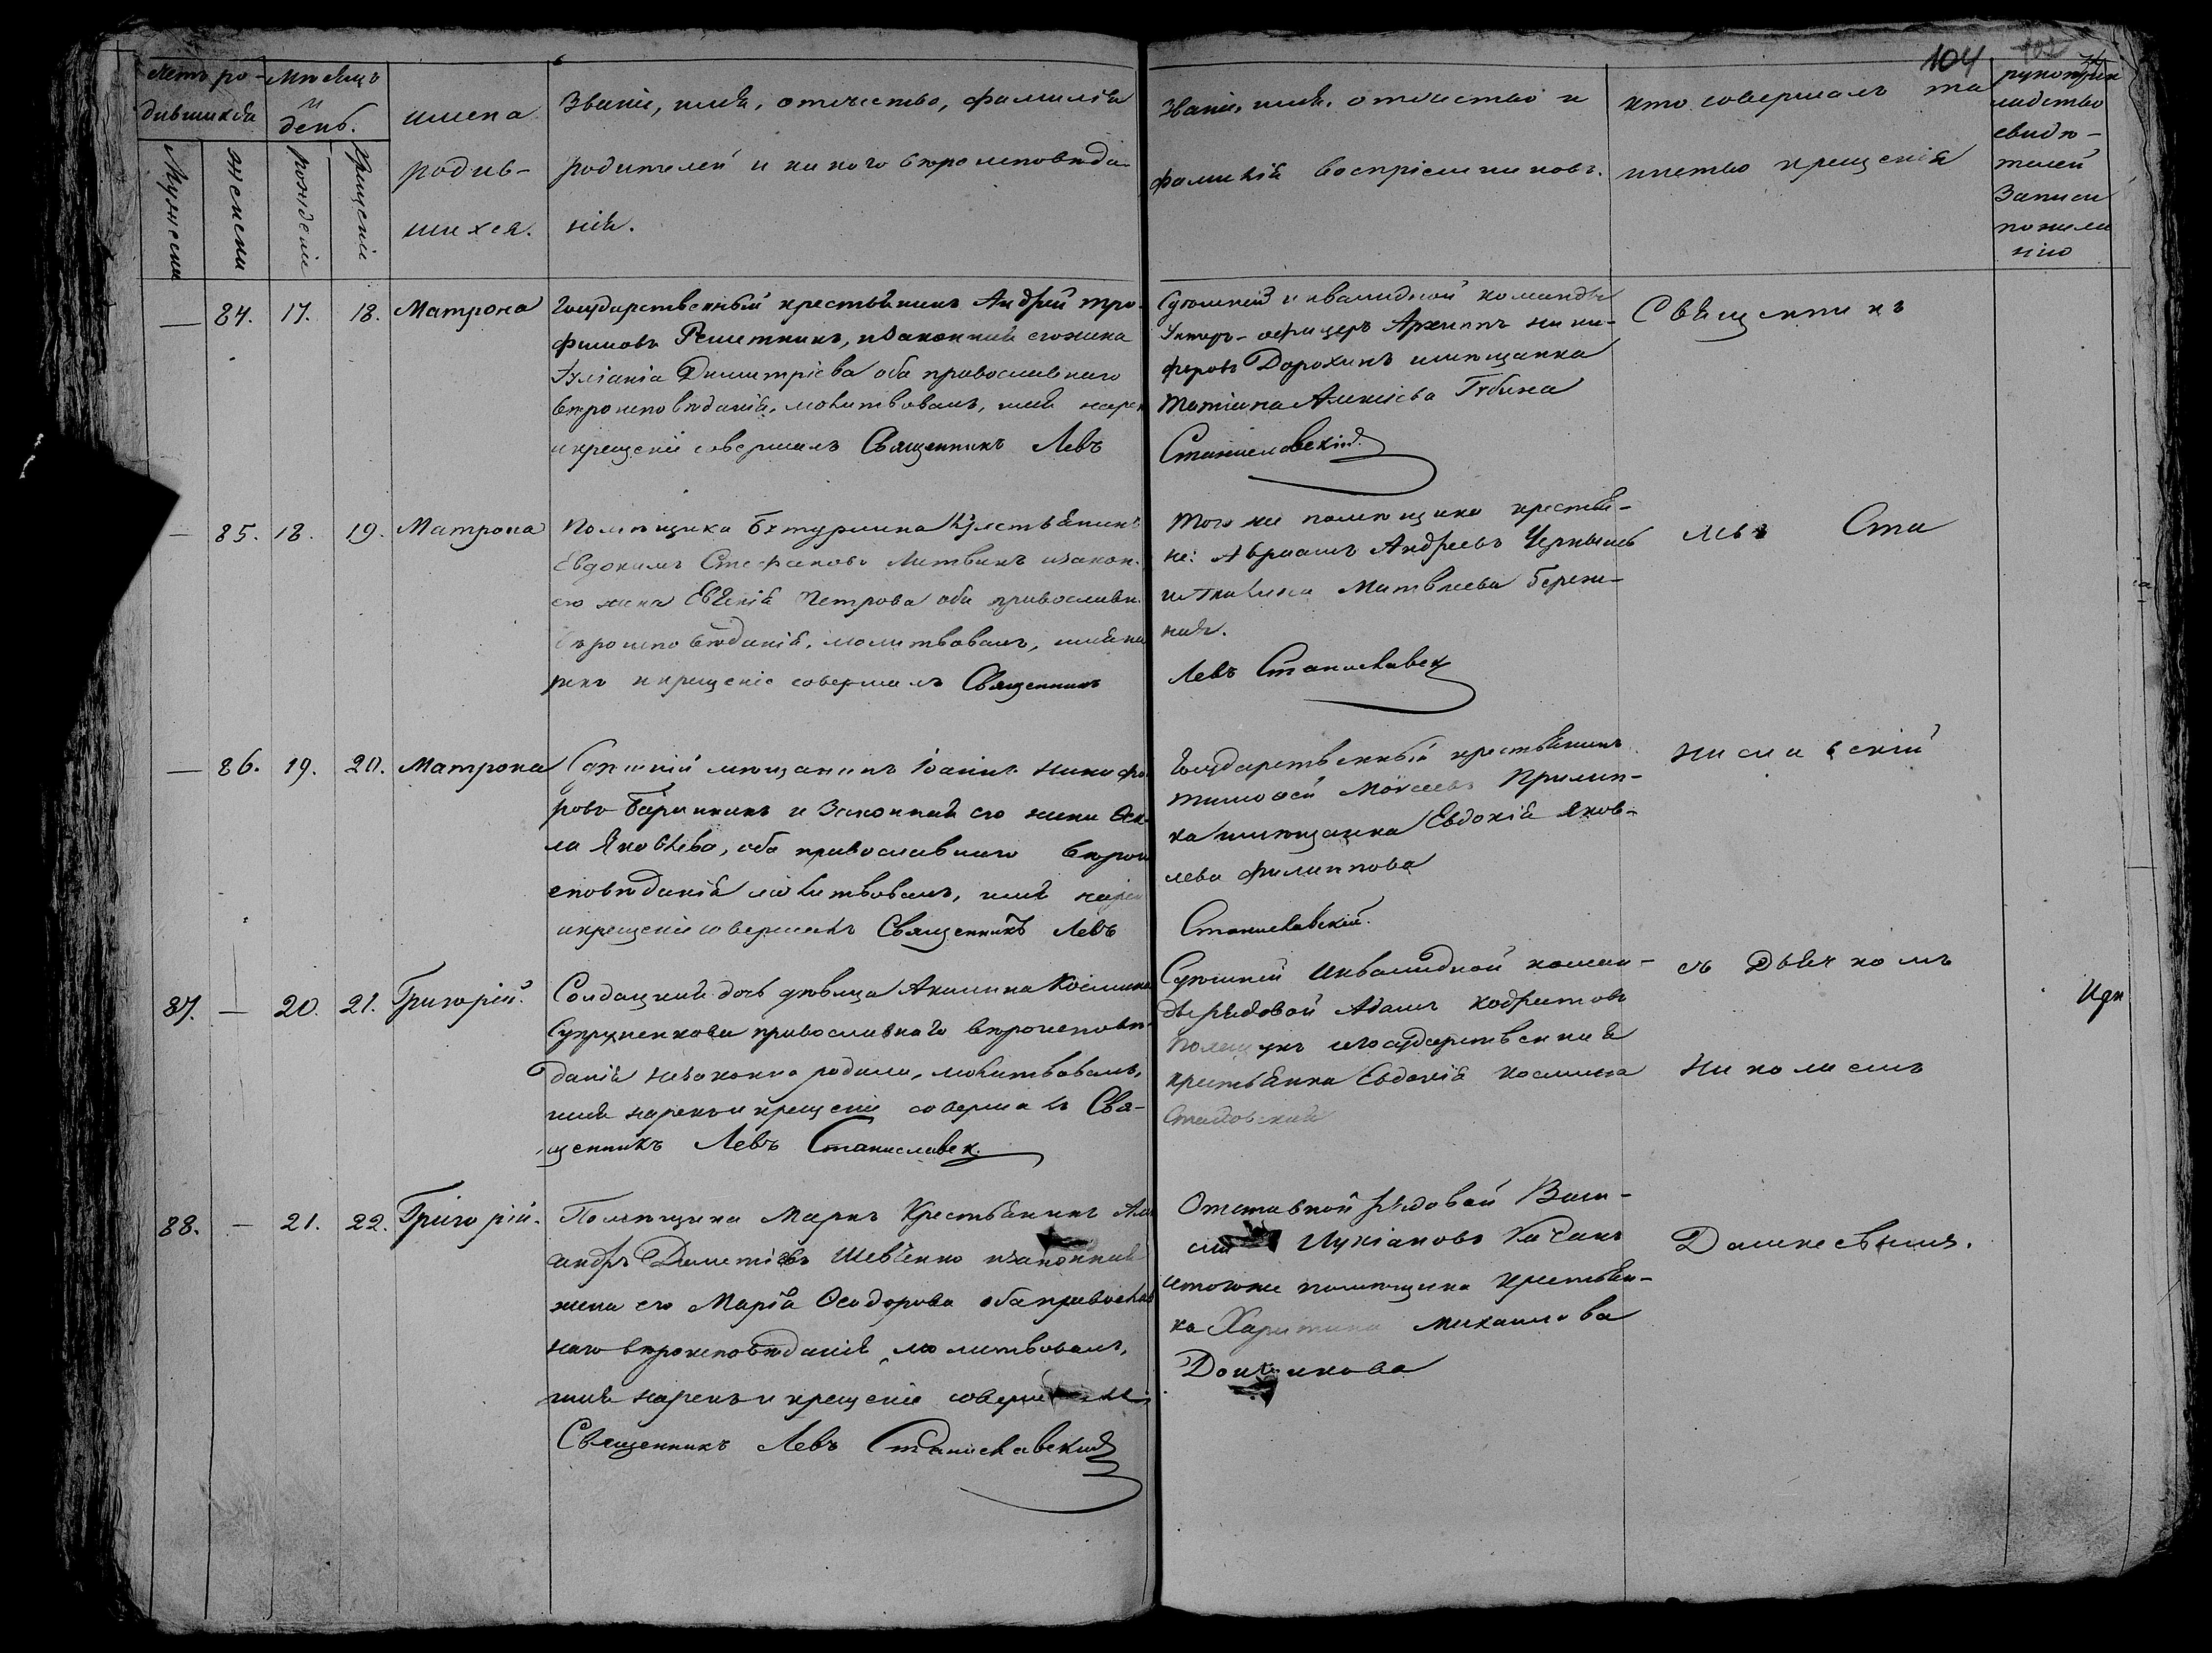 104
Счетъ ро-
дившихся
Мѣсяцъ
и
день.
Мужески
женски
рожденія
крещенія
имена
родив-
шихся.
Званіе, имя, отечество, фамилія
родителей и какого вѣроисповѣда
нія.
Званіе, имя, отечество и
фамилія воспріемниковъ.
кто совершалъ та
инство крещенія
рукоприк
ладство
свидѣ-
телей
записи
по жела
нію
— 84. 17. 18. Матрона
Государственный крестьянинъ Андрей тро-
фимовъ Решетникъ, изаконная егожена
Іуліанія Димитріева оба православнаго
вѣроисповѣданія, молитвовалъ, имя нарек
икрещеніе совершалъ Священникъ Левъ
Сумской инвалидной команды
Унтеръ-офицеръ Архиппъ ники-
форовъ Дорохинъ имѣщанка
татіана Алексіева Губина
Станиславскій
Священникъ
— 85. 18. 19. Матрона
Помѣщика Бутурлина Крестьянинъ
Евдокимъ Стефановъ Литвинъ изакон.
его жена Евгенія Петрова оба православн.
вѣроисповѣданія, молитвовалъ, имя на
рекъ икрещеніе совершалъ Священникъ
Того же помѣщика крестья-
не: Авраамъ Андреевъ Чернышъ
Матвѣева Береж-
ная.
Левъ Станиславск
Левъ Ста
— 86. 19. 20. Матрона
Сумской мѣщанинъ Іоаннъ Никифо
ровъ и Законная его жена Ѳек
ла Яковлева, оба православнаго вѣрои
сповѣданія молитвовалъ, имя нарек
икрещеніе совершалъ Священникъ Левъ
Государственный крестьянинъ
тимоѳей Моѵсеевъ Прилип-
ка имѣщанка Евдокія Яков-
лева филиппова
Станиславскій.
ниславскій
87. — 20. 21. Григорій.
Солдацкая дочь дѣвица Акилина Космина
Супруненкова православнаго вѣроисповѣ-
данія незаконно родила, молитвовалъ,
имя нарекъ и крещеніе совершалъ Свя-
щенникъ Левъ Станиславск.
Сумской Инвалидной коман-
ды рядовой Адамъ
Полещукъ игосударственная
крестьянка Евдокія космина
съ Дьячкомъ
Николаемъ
88. — 21. 22. Григорій.
Помѣщика Маркъ Крестьянинъ Але
андръ Дометіевъ Шевченко изаконная
жена его Марія Ѳеодорова оба православ
наго вѣроисповѣданія, молитвовалъ,
имя нарекъ и крещеніе соверш
Священникъ Левъ Станиславскій
Отставной рядовой Васи-
Лукіановъ Качанъ
итогоже помѣщика крестьян-
ка Харитина михаилова
Данкевымъ.